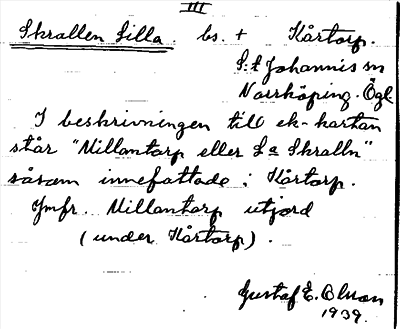 III
Skrallen Lilla. bs. + Kårtorp.
S:t Johannis sn
Norrköping. Ögl.
I beskrivningen till ek-kartan
står "Millantorp eller La Skralln"
såsom innefattade i Kårtorp.
Jmfr. Millantorp utjord
(under Kårtorp).
Gustaf E. Olsson
1939.